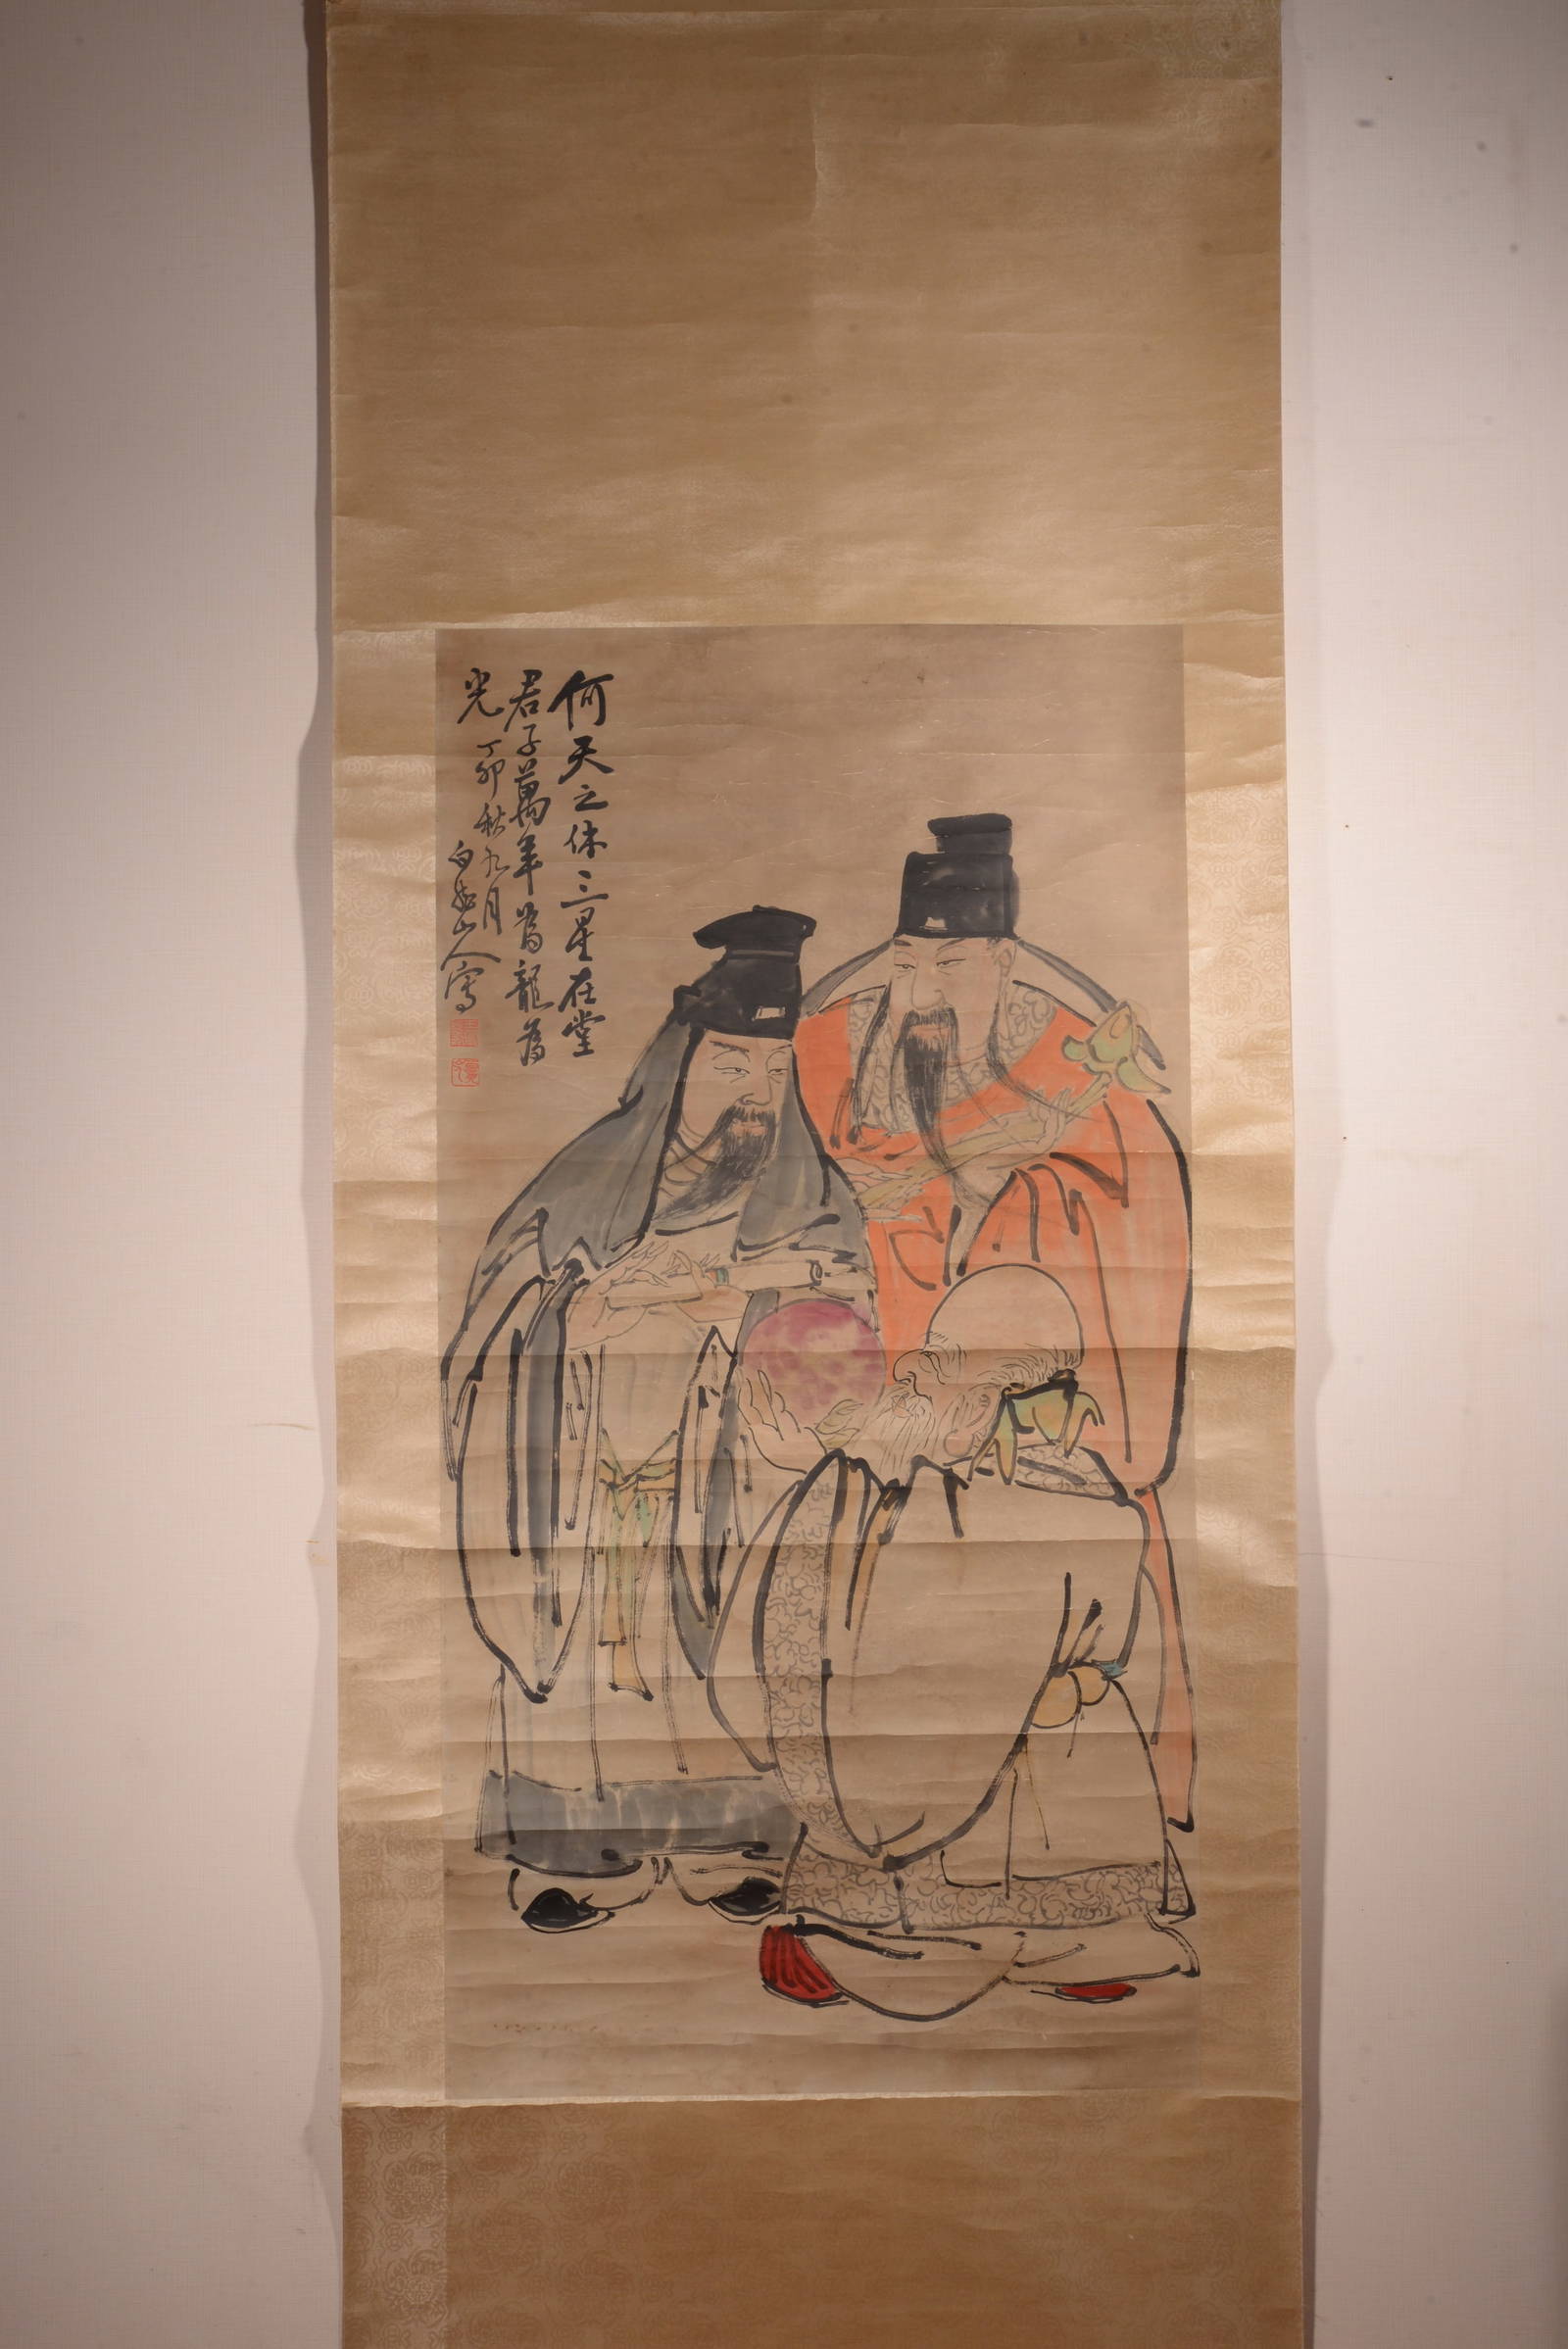 何天之休三星在堂
君子萬年為龍為
光 丁卯秋九月
白龍山人寫